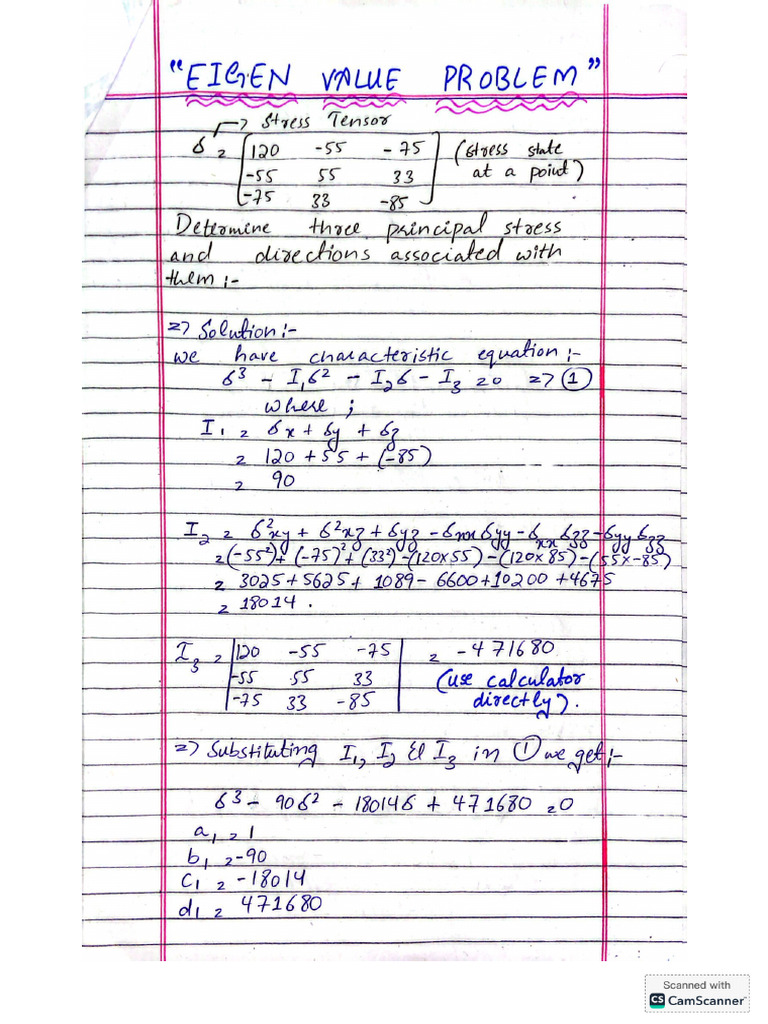 "EIGEN VALUE PROBLEM"
→ Stress Tensor
σ = [120 -55 -75] (stress state
-55 55 33 at a point)
-75 33 -85
Determine three principal stress
and directions associated with
them :-
=> Solution :-
we have characteristic equation :-
σ³ - I₁σ² - I₂σ - I₃ = 0 => ①
where ;
I₁ = σx + σy + σz
= 120 + 55 + (-85)
= 90
I₂ = σ²xy + σ²xz + σyz - σxx σyy - σxx σzz - σyy σzz
= (-55²) + (-75)² + (33²) - (120x55) - (120x85) - (55x-85)
= 3025 + 5625 + 1089 - 6600 + 10200 + 4675
= 18014 .
I₃ = |120 -55 -75| = -471680
-55 55 33 (use calculator
-75 33 -85 directly).
=> Substituting I₁, I₂ & I₃ in ① we get :-
σ³ - 90σ² - 18014σ + 471680 = 0
a₁ = 1
b₁ = -90
c₁ = -18014
d₁ = 471680
Scanned with
CS CamScanner